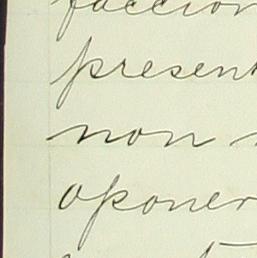 faccion
present
non
oponer